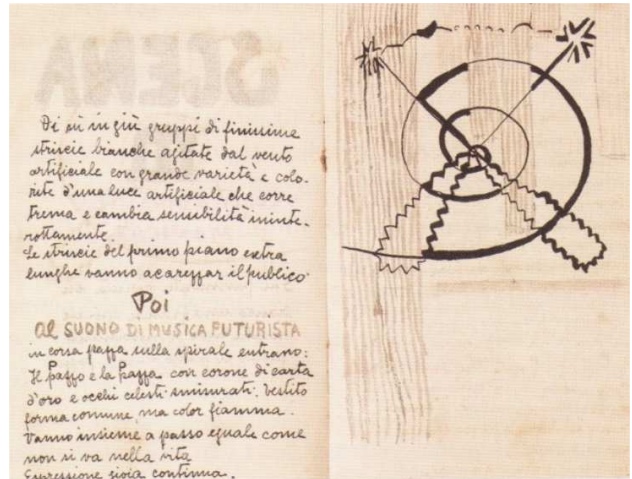 SCENA
Di su in giù gruppi di finissime
striscie bianche agitate dal vento
artificiale con grande varietà e colo-
rite d'una luce artificiale che corre
trema e cambia sensibilità ininte-
rottamente.
Le striscie del primo piano extra
lunghe vanno a carezzar il publico
Poi
al SUONO DI MUSICA FUTURISTA
in corsa pazza sulla spirale entrano:
Il pazzo e la pazza con corone di carta
d'oro e occhi celesti smisurati. Vestito
forma comune, ma color fiamma.
Vanno insieme a passo eguale come
non si va nella vita
Espressione gioia continua.